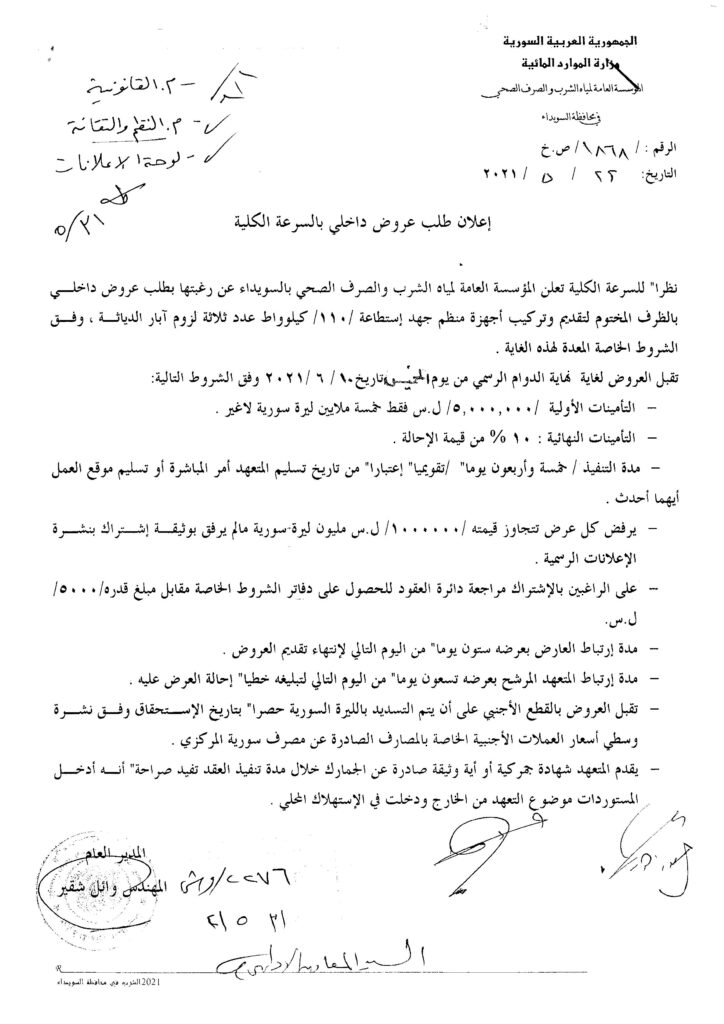 الجمهورية العربية السورية
وزارة الموارد المائية
المؤسسة العامة لمياه الشرب والصرف الصحي
في محافظة السويداء
الرقم : /١٨٦٨/ ص.خ
التاريخ: ٢٢ / ٥ / ٢٠٢١
- م. القانونية
- م. النظم والتقانة
- لوحة الاعلانات
٥/٣١
إعلان طلب عروض داخلي بالسرعة الكلية
نظرا" للسرعة الكلية تعلن المؤسسة العامة لمياه الشرب والصرف الصحي بالسويداء عن رغبتها بطلب عروض داخلي
بالظرف المختوم لتقديم وتركيب أجهزة منظم جهد إستطاعة /١١٠/ كيلوواط عدد ثلاثة لزوم آبار الدياثة ، وفق
الشروط الخاصة المعدة لهذه الغاية .
تقبل العروض لغاية نهاية الدوام الرسمي من يوم الخميس تاريخ ١٠ / ٦ / ٢٠٢١ وفق الشروط التالية:
– التأمينات الأولية /٥,٠٠٠,٠٠٠/ ل.س فقط خمسة ملايين ليرة سورية لاغير .
– التأمينات النهائية : ١٠ % من قيمة الإحالة .
– مدة التنفيذ / خمسة وأربعون يوما" /تقويميا" إعتبارا" من تاريخ تسليم المتعهد أمر المباشرة أو تسليم موقع العمل
أيهما أحدث .
– يرفض كل عرض تتجاوز قيمته /١٠٠٠٠٠٠/ ل.س مليون ليرة سورية مالم يرفق بوثيقة إشتراك بنشرة
الإعلانات الرسمية .
– على الراغبين بالإشتراك مراجعة دائرة العقود للحصول على دفاتر الشروط الخاصة مقابل مبلغ قدره/٥٠٠٠/
ل.س.
– مدة إرتباط العارض بعرضه ستون يوما" من اليوم التالي لإنتهاء تقديم العروض .
– مدة إرتباط المتعهد المرشح بعرضه تسعون يوما" من اليوم التالي لتبليغه خطيا" إحالة العرض عليه .
– تقبل العروض بالقطع الأجنبي على أن يتم التسديد بالليرة السورية حصرا" بتاريخ الإستحقاق وفق نشرة
وسطي أسعار العملات الأجنبية الخاصة بالمصارف الصادرة عن مصرف سورية المركزي .
– يقدم المتعهد شهادة جمركية أو أية وثيقة صادرة عن الجمارك خلال مدة تنفيذ العقد تفيد صراحة" أنه أدخل
المستوردات موضوع التعهد من الخارج ودخلت في الإستهلاك المحلي .
المدير العام
المهندس وائل شقير
٢٢٧٦/
٣١ ٥ ٢١
السيد المعاون الاداري
2021 الشرب في محافظة السويداء